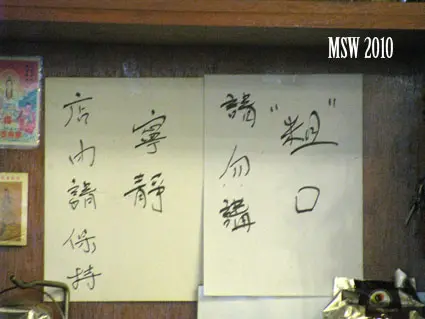 MSW 2010
店內請保持
寧靜
請勿講
"粗"口